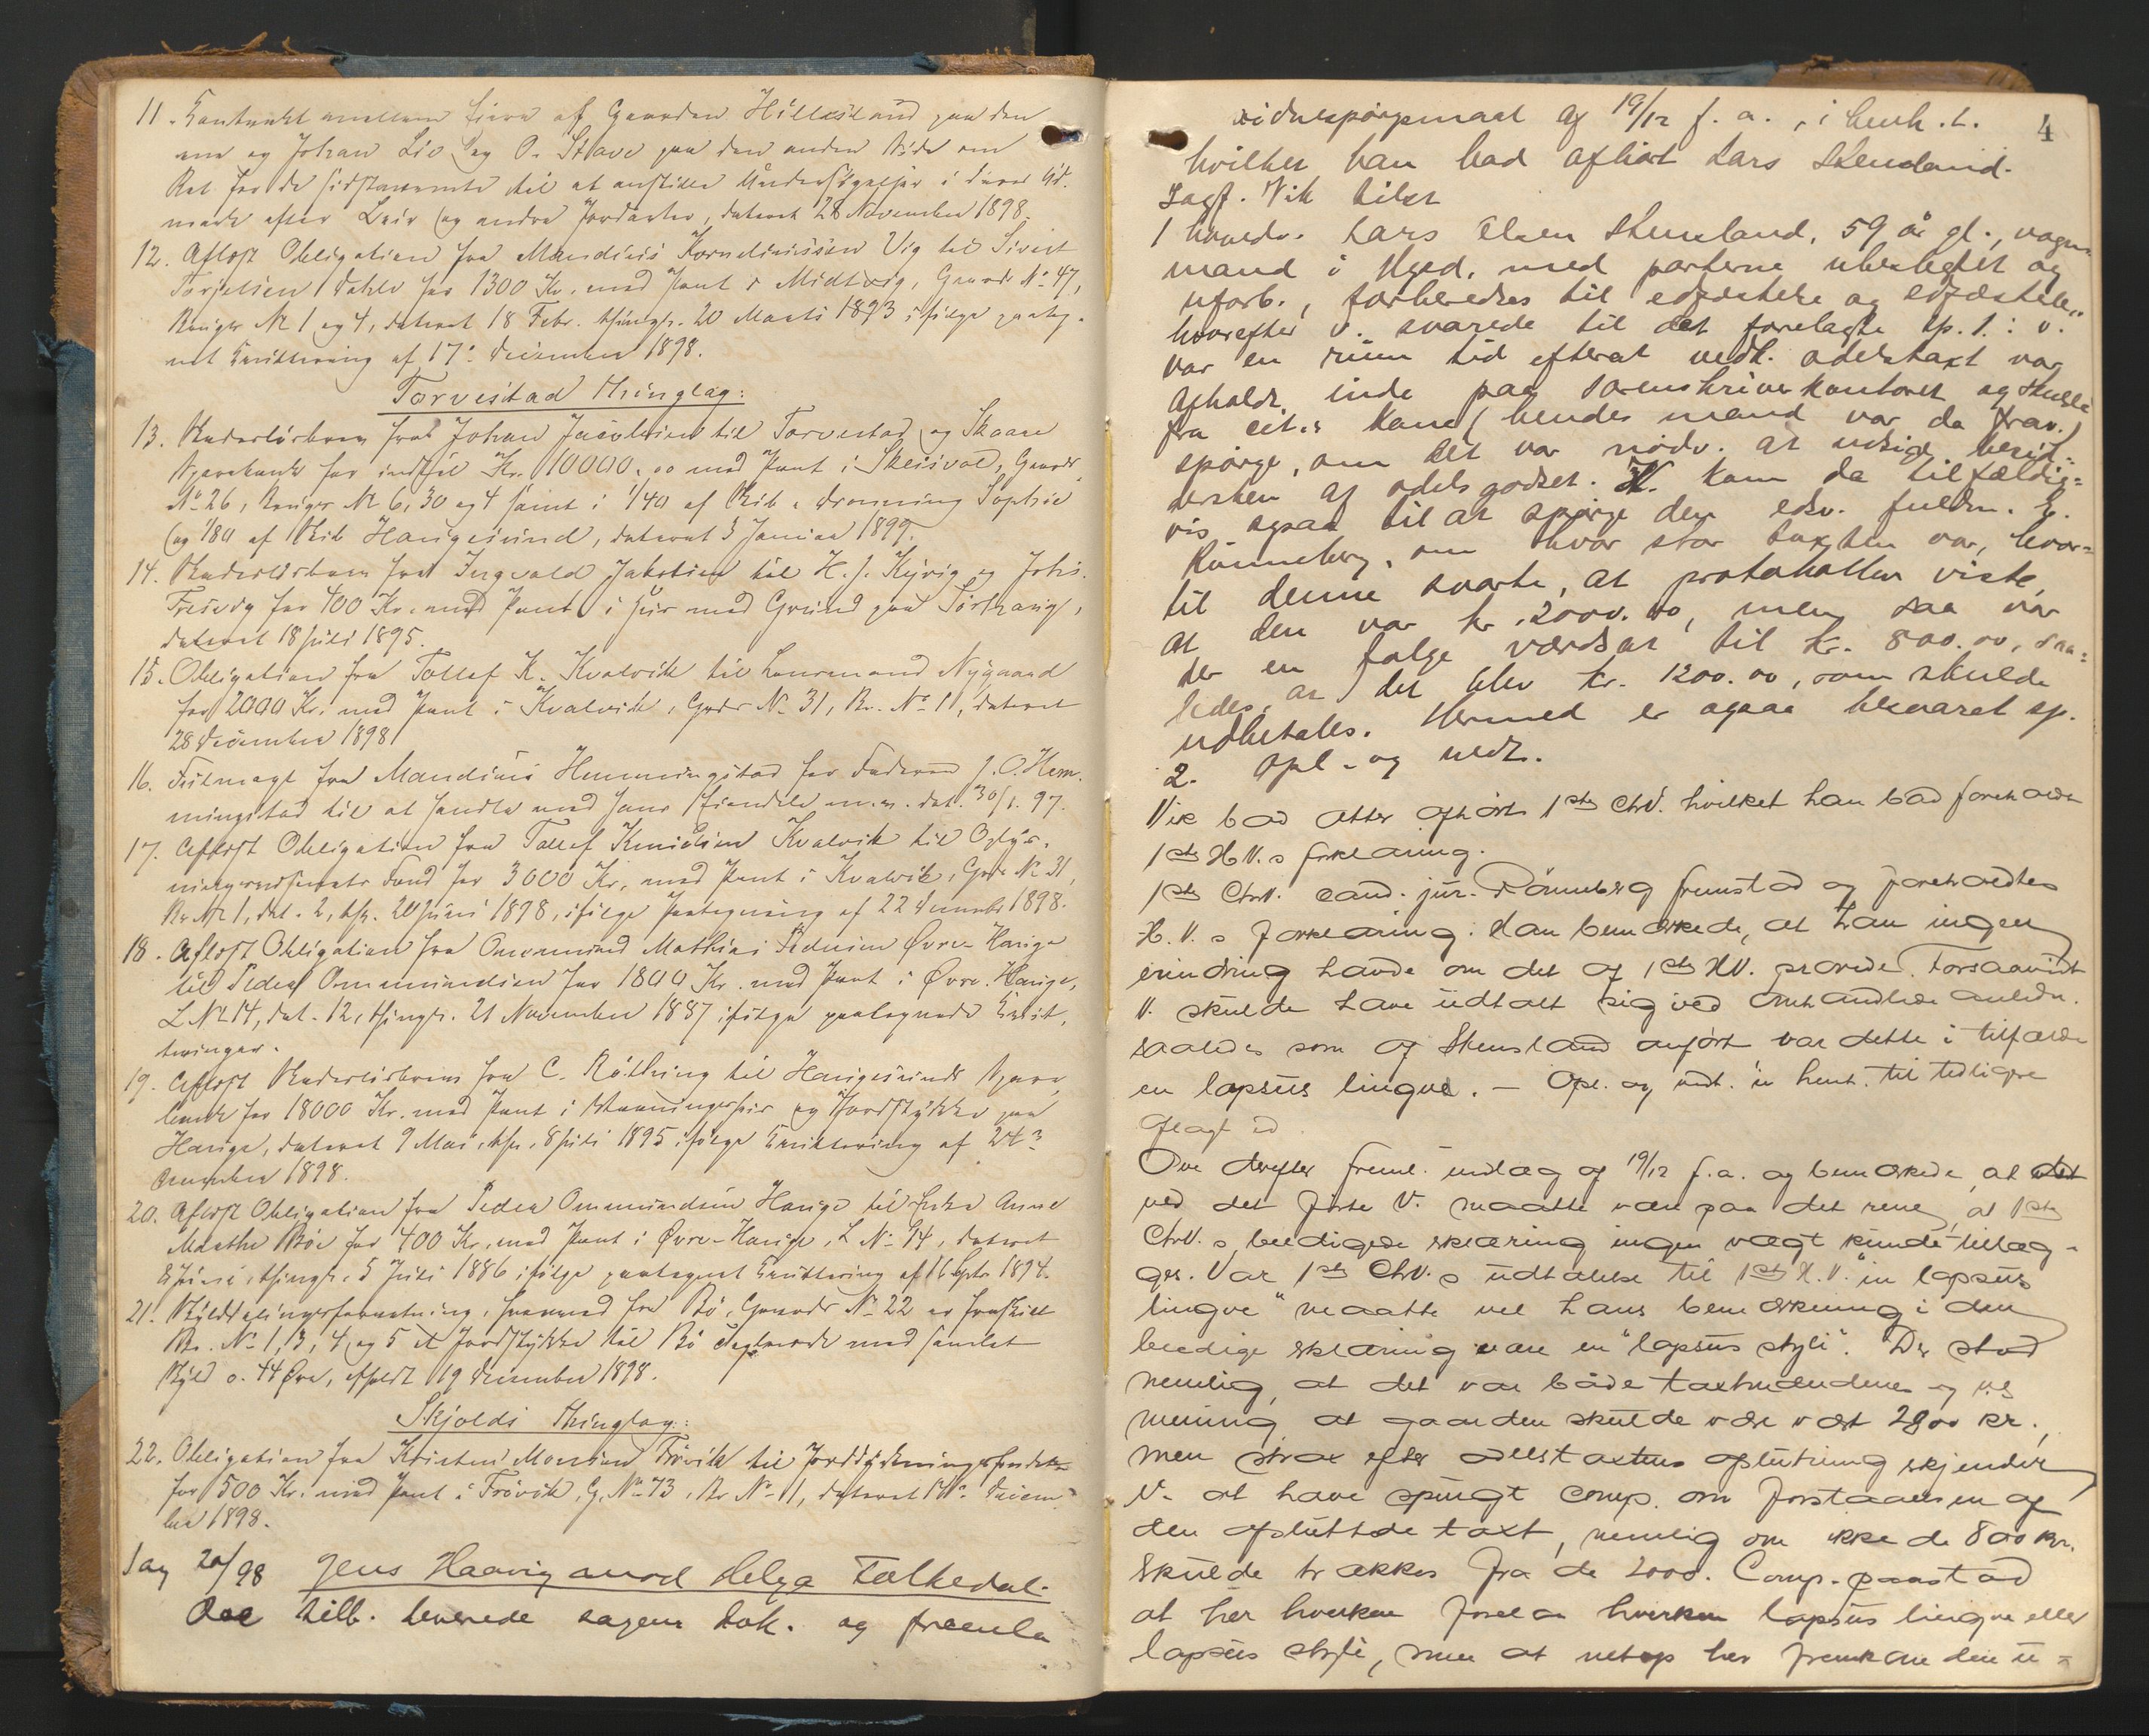 11. Kontrakt mellem Eiere af Gaarden Hillesland paa den
ene og Johan Lie og O. Stave paa den anden Side om
Ret for de sidstnævnte til at anstille Undersøgelser i deres Ud-
mark efter Leir og andre Jordarter, dateret 28 November 1898.
12. Aflyst Obligation fra Mandius Korneliussen Vig til Sivert
Torjelsen Dahle for 1300 Kr. med Pant i Midtvig, Gaards No. 47,
Bruges No 1 og 4, dateret 18 Febr. thingl. 20 Marts 1893 ifølge paateg-
net Kvittering af 17. December 1898.
Torvestad Thinglag:
13. Panteobligation fra Johan Jacobsen til Torvestad og Skaare
Sparebank for indtil Kr. 10000.00 med Pant i Skeisvol, Gaards
No 26, Bruges No 6, 30 og 4 samt i 1/40 af Skib Dronning Sophie
og 1/80 af Skib Haugesund, dateret 3 Januar 1899.
14. fra Ingvald Jakobsen til H. J. Kyvig og Johs.
for 400 Kr. med Pant i Hus med Grund paa Sørhaug,
dateret 18 Juli 1895.
15. Obligation fra Tollef K. Kvalvik til Lensmand Nygaard
for 2000 Kr. med Pant i Kvalvik, Gards No 31, Br. No 11, dateret
28 December 1898
16. Fuldmagt fra Mandius Hemmingstad for Faderen J. O. Hem-
mingstad til at handle med hans Eiendele m.m. dat. 30/1. 97.
17. Aflyst Obligation fra Tollef Knudsen Kvalvik til Oplys-
ningsvæsenets Fond for 3000 Kr. med Pant i Kvalvik, Gards No 31,
Br. No 1, dat. 2, thgl. 20 Juni 1898, ifølge Paategning af 22 December 1898.
18. Aflyst Obligation fra Ommund Mathias Pedersen Øvre-Hauge
til Peder Ommundsen for 1800 Kr. med Pant i Øvre-Hauge,
L No 14, dat. 12, thingl. 21 November 1887 ifølge paategnede Kvit-
teringer.
19. Aflyst fra C. Røthing til Haugesunds Spare-
bank for 18000 Kr. med Pant i Vaaningshus og Jordstykke paa
Hauge, dateret 9 Mai, thgl. 8 Juli 1895 ifølge Kvittering af 24
December 1898.
20. Aflyst Obligation fra Peder Ommundsen Hauge til Enke Anne
Marthe Bøe for 400 Kr. med Pant i Øvre-Hauge, L No 14, dateret
8 Juni, thingl. 5 Juli 1886 ifølge paategnet Kvittering af 16 Septr. 1894.
21. Skylddelingsforretning, hvorved fra Bø, Gaards No 22 er fraskilt
Br. No 1, 3, 4 og 5 et Jordstykke til Bø Teglværk med samlet
Skyld 0.44 Øre, afholdt 19 December 1898.
Skjolds Thinglag:
22. Obligation fra Kristen Monsen Frøvik til Jorddyrkningsfondet
for 500 Kr. med Pant i Frøvik, G. No 73, Br No 11, dateret Decem-
ber 1898.
Sag 20/98 Jens Haavig mod Helge Falkedal.
Ove tilst. leverede sagens dok. og fremla
4
vidnespørgsmaal af 19/12 f. a., i henh. t.
hvilket han bad afhørt Lars Stensland.
Sagf. Vik tilst
1 hovedv. Lars Elsen Stensland, 59 år gl., vogn-
mand i Hgsd. med parterne ubeslegtet og
uforb., forberedtes til edfæstelse og edfæstede,
hvorefter v. svarede til det forelagte sp. 1.: v.
var en stund tid efterat vedk. odelstaxt var
afholdt, inde paa sorenskriverkontoret og skulde
fra cit.s kone (hendes mand var da frav.)
spørge, om det var nødv. at udsige besid-
delsen af odelsgodset. V. kom da tilfældig-
vis ogsaa til at spørge den edsv. fuldm. Hr.
Rønneberg, om hvor stor taxten var, hvor-
til denne svarte, at protokollen viste,
at den var kr. 2000.00, men saa var
der en følge værdsat til kr. 800.00, saa-
ledes, at det blev kr. 1200.00, som skulde
udbetales. Hermed er ogsaa besvaret sp.
2. Opl. og vedt.
Vik bad atter afhørt 1ste Ctrv. hvilket han bad foreholdt
1ste H.V.s forklaring.
1ste Ctrv. cand. jur. Rønneberg fremstod og foreholdtes
H.V.s forklaring. Han bemærkede, at han ingen
erindring havde om det af 1ste HV. provede. Forsaavidt
V. skulde have udtalt sig ved omhandlede anledn.
saaledes som af Stensland anført var dette i tilfælde
en lapsus lingvæ. — Opl. og vedt. u. henh. til tidligere
aflagt ed
Ove derefter freml. indlæg af 19/12 f. a. og bemærkede, at det
ved detførte V. maatte være paa det rene, at 1ste
Ctrv.s beedigede erklæring ingen vægt kunde tillæg-
ges. Var 1ste Ctrv.s udtalelse til 1ste H.V. "en lapsus
lingvæ" maatte vel hans bemærkning i den
beedige erklæring være en "lapsus styli". Der stod
nemlig, at det var både taxtmændenes og V.s
mening, at gaarden skulde være vært 2800 kr.,
men strax efter odelstaxtens afslutning skjender
V. at have spurgt comp. om forstaaelsen af
den afsluttede taxt, nemlig om ikke de 800 kr.
skulde trækkes fra de 2000. Comp. paastod
at her hverken forelaa hverken lapsus lingvæ eller
lapsus styli, men at netop her fremkom den u-